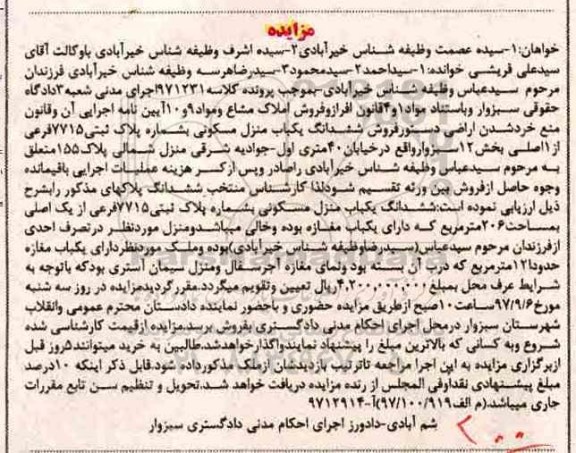 مزایده
خواهان:۱-سیده عصمت وظیفه شناس خیرآبادی۲-سیده اشرف وظیفه شناس خیرآبادی باوکالت آقای
سیدعلی قریشی خوانده:۱-سیداحمد۲-سیدمحمود۳-سیدرضاهرسه وظیفه شناس خیرآبادی فرزندان
مرحوم سیدعباس وظیفه شناس خیرآبادی-بموجب پرونده کلاسه۹۷۱۲۳۱اجرای مدنی شعبه۳دادگاه
حقوقی سبزوار وباستناد مواد۱و۴قانون افرازوفروش املاک مشاع ومواد۹و۱۰آیین نامه اجرایی آن وقانون
منع خردشدن اراضی دستورفروش ششدانگ یکباب منزل مسکونی بشماره پلاک ثبتی۷۷۱۵فرعی
از۱اصلی بخش۱۲سبزوارواقع درخیابان۴۰متری اول-جوادیه شرقی منزل شمالی پلاک۱۵۵متعلق
به مرحوم سیدعباس وظیفه شناس خیرآبادی راصادر وپس ازکسر هزینه عملیات اجرایی باقیمانده
وجوه حاصل ازفروش بین ورثه تقسیم شودلذا کارشناس منتخب ششدانگ پلاکهای مذکور رابشرح
ذیل ارزیابی نموده است:ششدانگ یکباب منزل مسکونی بشماره پلاک ثبتی۷۷۱۵فرعی از یک اصلی
بمساحت۲۰۶مترمربع که دارای یکباب مغازه بوده وخالی میباشدومنزل موردنظر درتصرف احدی
ازفرزندان مرحوم سیدعباس(سیدرضاوظیفه شناس خیرآبادی)بوده وملک موردنظردارای یکباب مغازه
حدودا۱۲مترمربع که درب آن بسته بود ونمای مغازه آجرسفال ومنزل سیمان آستری بودکه باتوجه به
شرایط عرف محل بمبلغ۴,۲۰۰,۰۰۰,۰۰۰ریال تعیین وتقویم میگردد.مقررگردیدمزایده در روز سه شنبه
مورخ۹۷/۹/۶ساعت۱۰صبح ازطریق مزایده حضوری و باحضور نماینده دادستان محترم عمومی وانقلاب
شهرستان سبزوار درمحل اجرای احکام مدنی دادگستری بفروش برسد.مزایده ازقیمت کارشناسی شده
شروع وبه کسانی که بالاترین مبلغ را پیشنهاد نمایندواگذارخواهدشد.طالبین به خرید میتوانند۵روز قبل
ازبرگزاری مزایده به این اجرا مراجعه تاترتیب بازدیدشان ازملک مذکورداده شود.قابل ذکر اینکه ۱۰درصد
مبلغ پیشنهادی نقداوفی المجلس از رنده مزایده دریافت خواهد شد.تحویل و تنظیم سن تابع مقررات
جاری میباشد.(م الف۹۷/۱۰۰/۹۱۹)آ-۹۷۱۲۹۱۴
شم آبادی-دادورز اجرای احکام مدنی دادگستری سبزوار